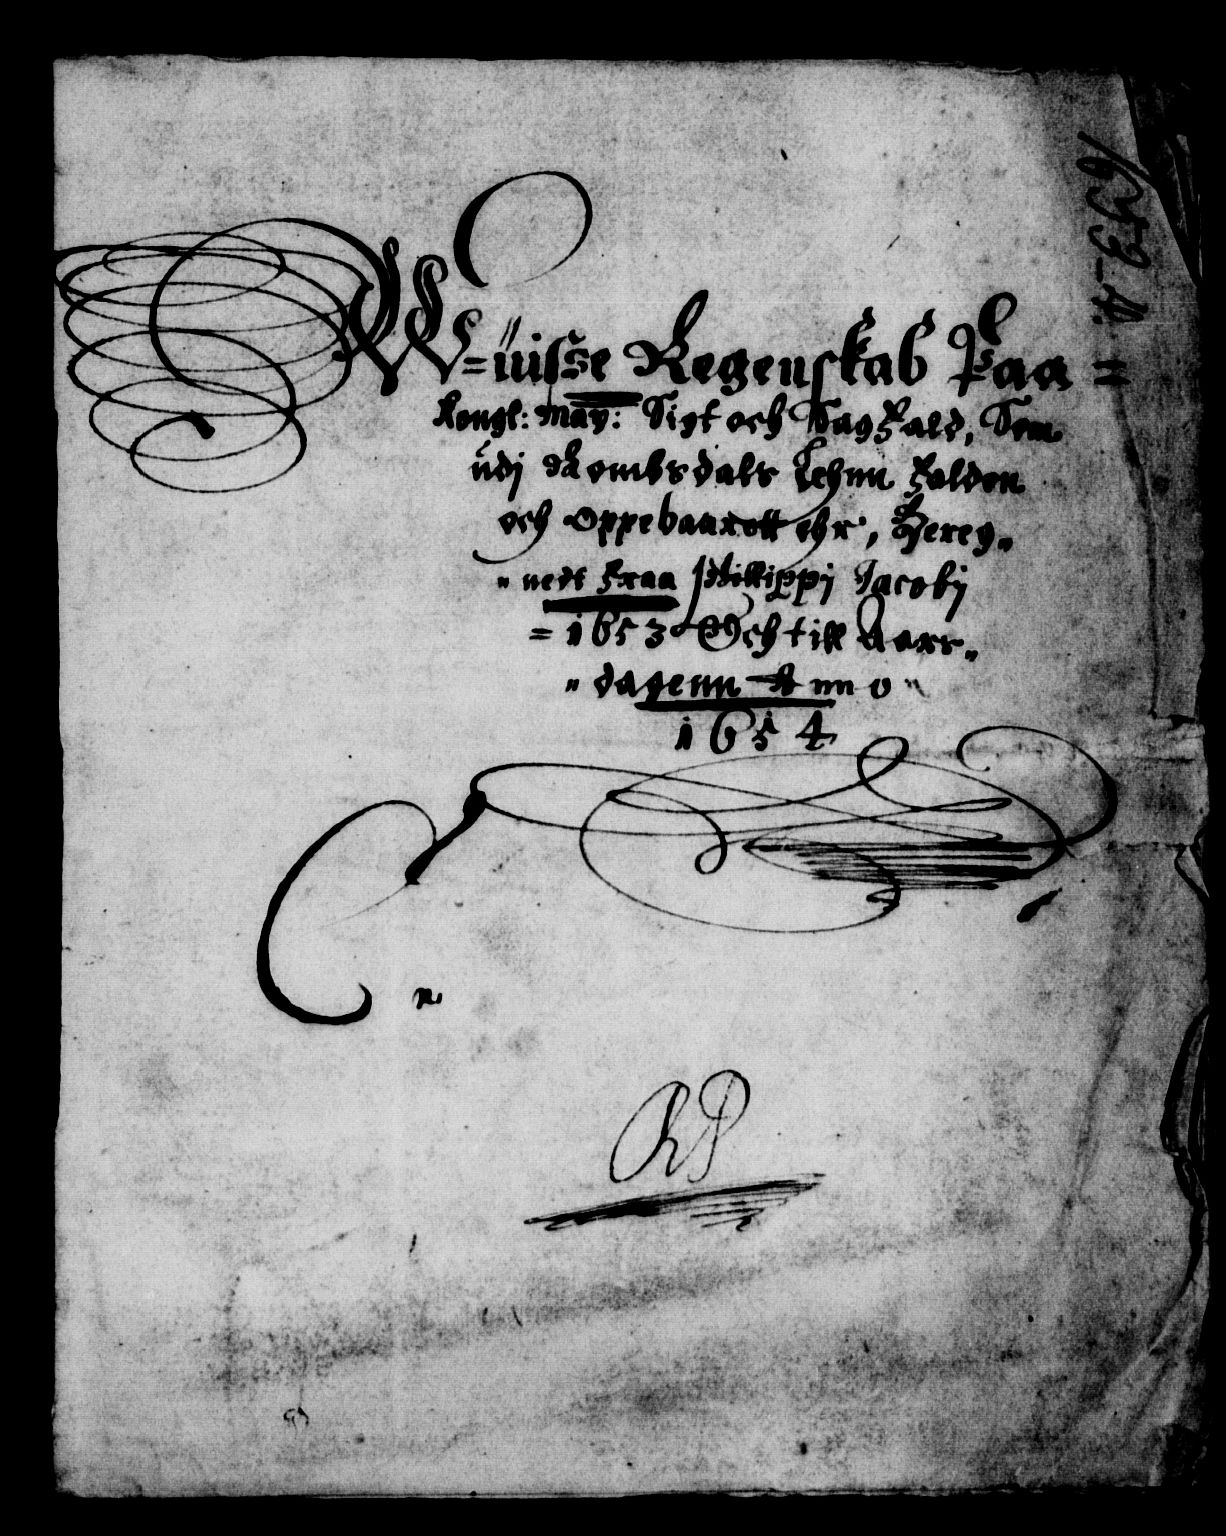 1653-4.
W=üisse Regenskab Paa =
Kongl: May: Sigt och SagFald, Som
udj Rombsdals Lehnn Falden
och Oppebaarett ehr, Bereg„
„nedt Fraa Phillippj Jacobj
= 1653 Och till Aars„
„dagenn Anno„
1654
RP